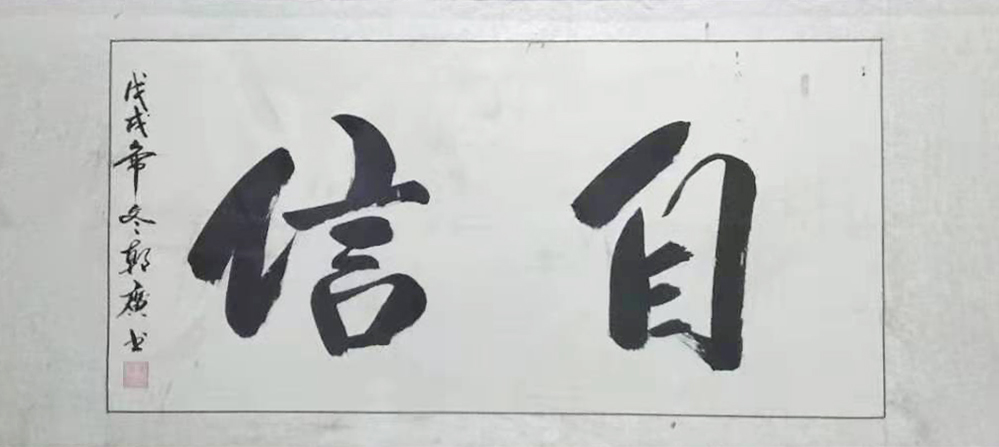 自信
戊戌年冬郭广书